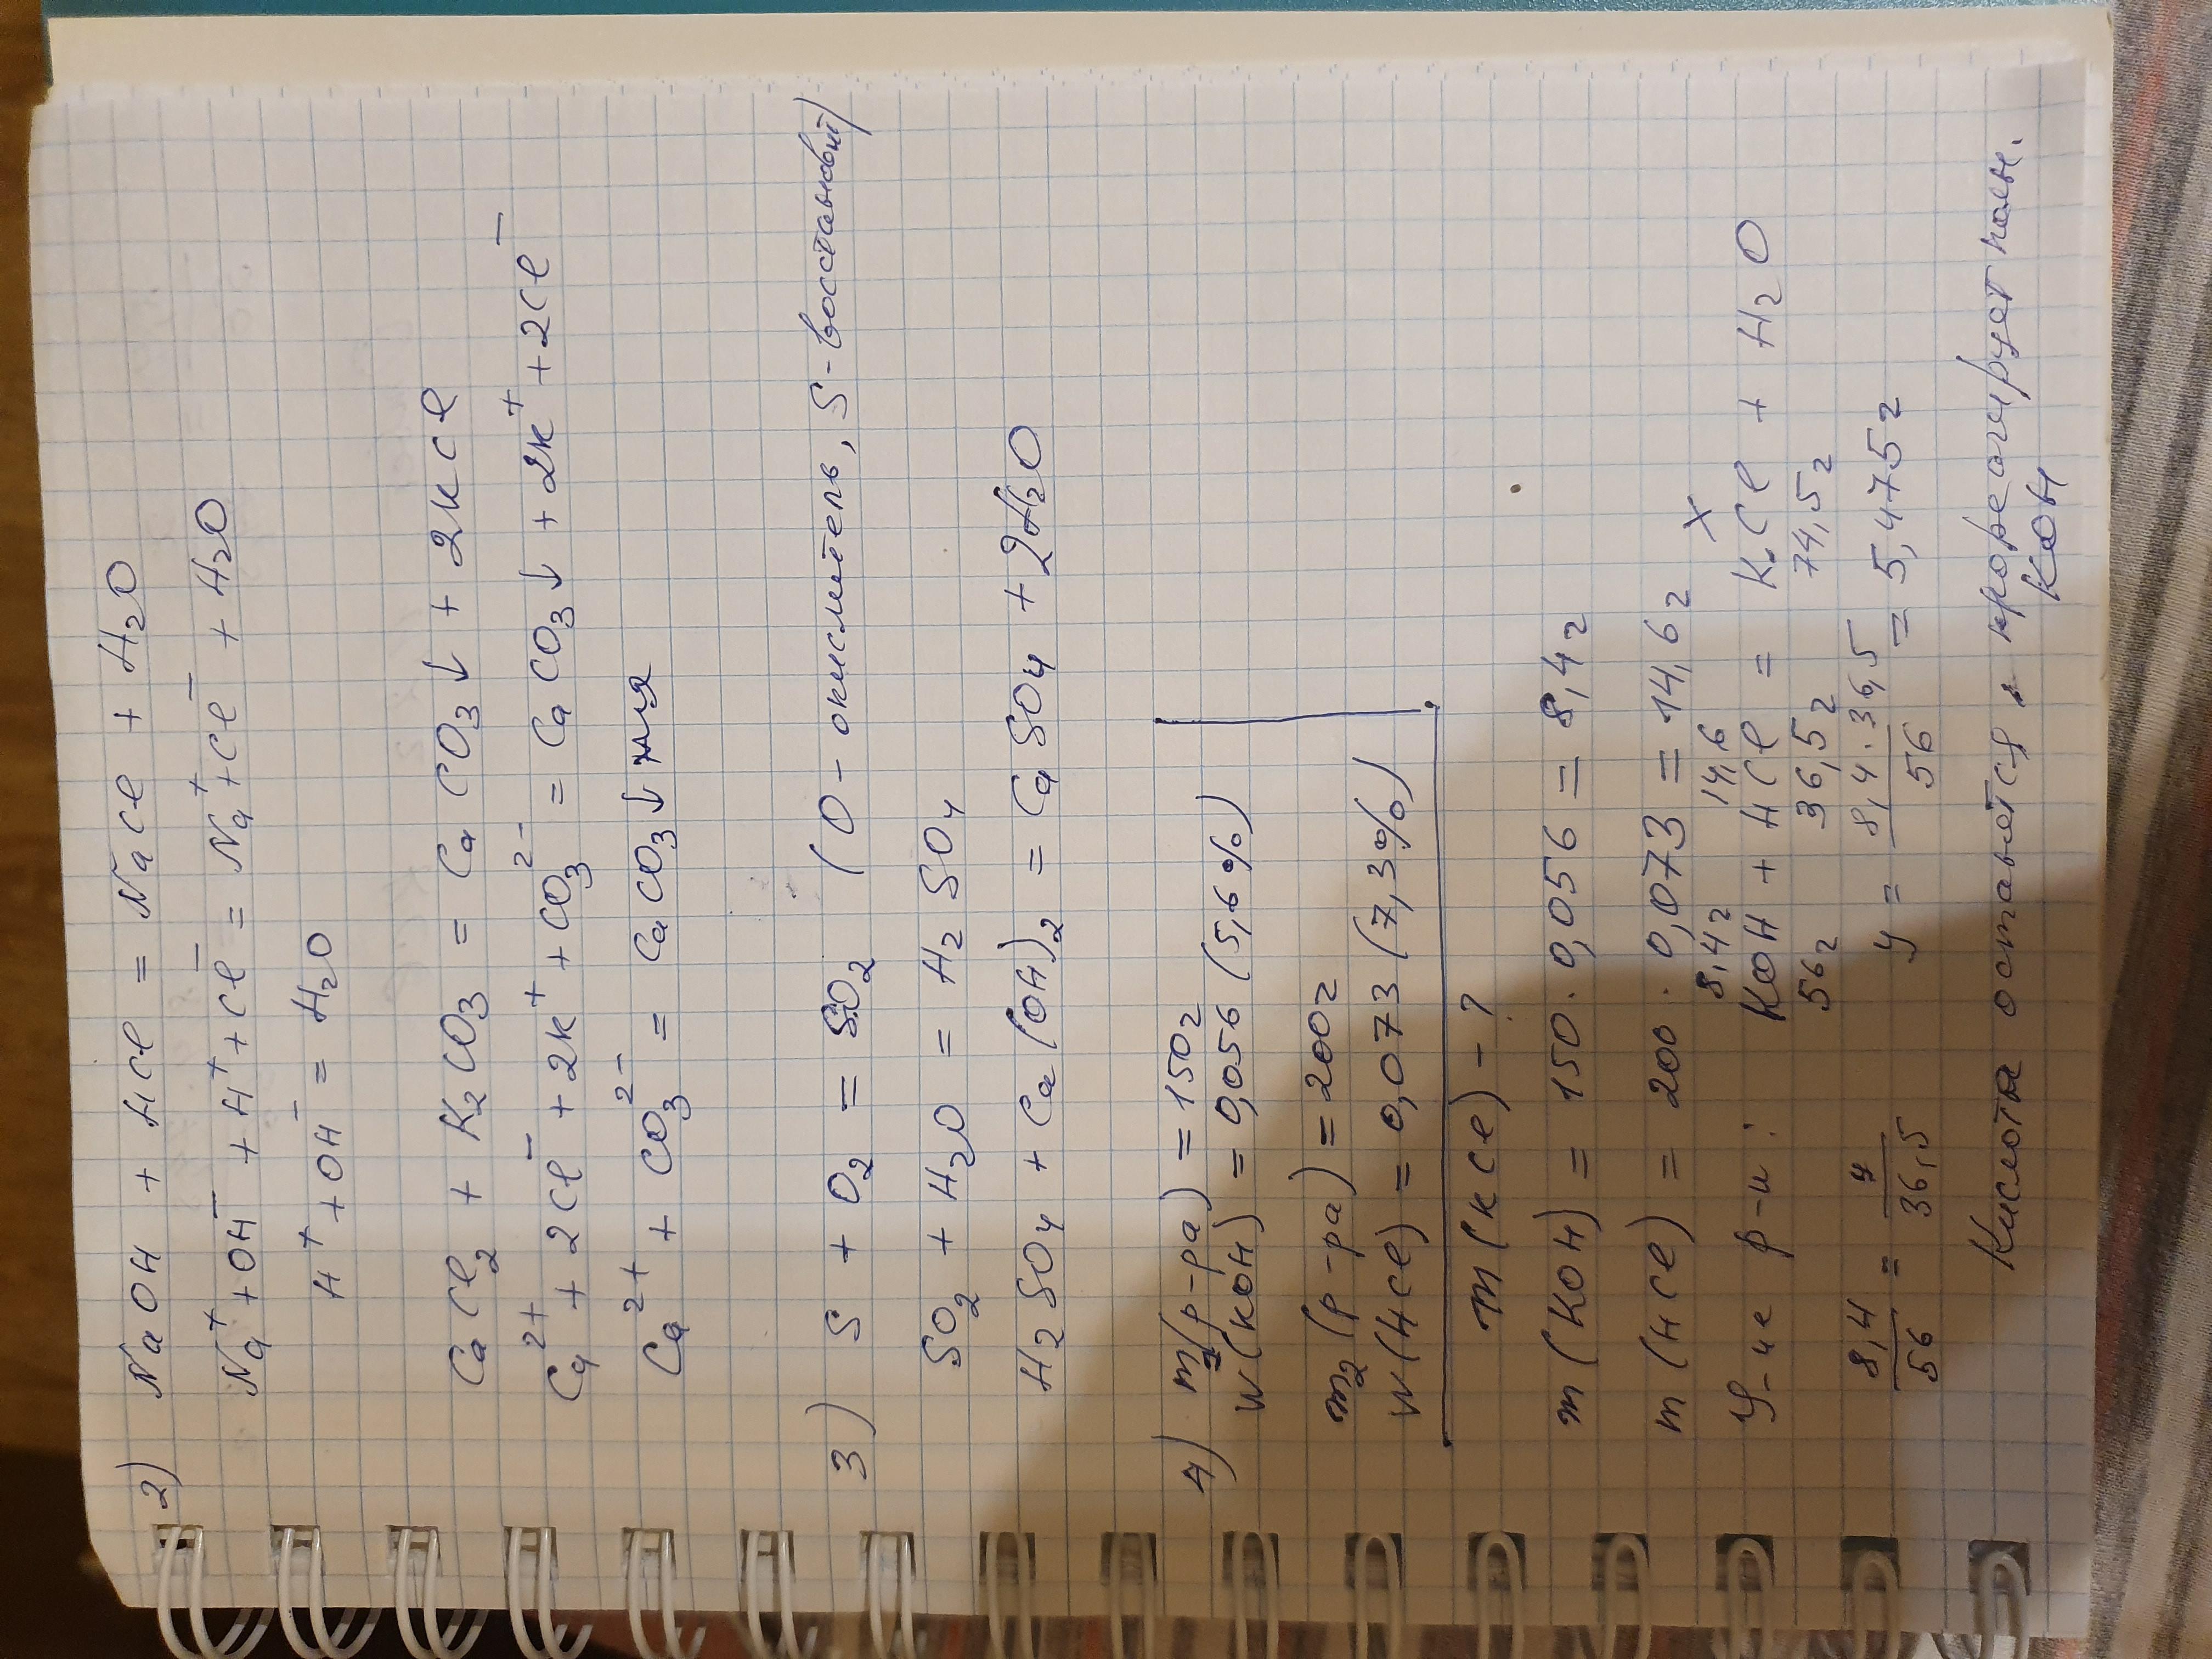 2) NaOH + HCl = NaCl + H₂O
Na⁺ + OH⁻ + H⁺ + Cl⁻ = Na⁺ + Cl⁻ + H₂O
H⁺ + OH⁻ = H₂O
CaCl₂ + K₂CO₃ = CaCO₃↓ + 2KCl
Ca²⁺ + 2Cl⁻ + 2K⁺ + CO₃²⁻ = CaCO₃↓ + 2K⁺ + 2Cl⁻
Ca²⁺ + CO₃²⁻ = CaCO₃↓
3) S + O₂ = SO₂ (O - окислитель, S - востановит)
SO₂ + H₂O = H₂SO₄
H₂SO₄ + Ca(OH)₂ = CaSO₄ + 2H₂O
4) m₁(р-ра) = 150г
w(KOH) = 0,056 (5,6%)
m₂(р-ра) = 200г
w(HCl) = 0,073 (7,3%)
m(KCl) - ?
m(KOH) = 150 · 0,056 = 8,4г
m(HCl) = 200 · 0,073 = 14,6г
8,4г 14,6 x
У-ие р-и: KOH + HCl = KCl + H₂O
56г 36,5г 74,5г
8,4/56 = y/36,5 y = 8,4 · 36,5/56 = 5,475г
Кислота остаётся, прореагирует полн.
KOH